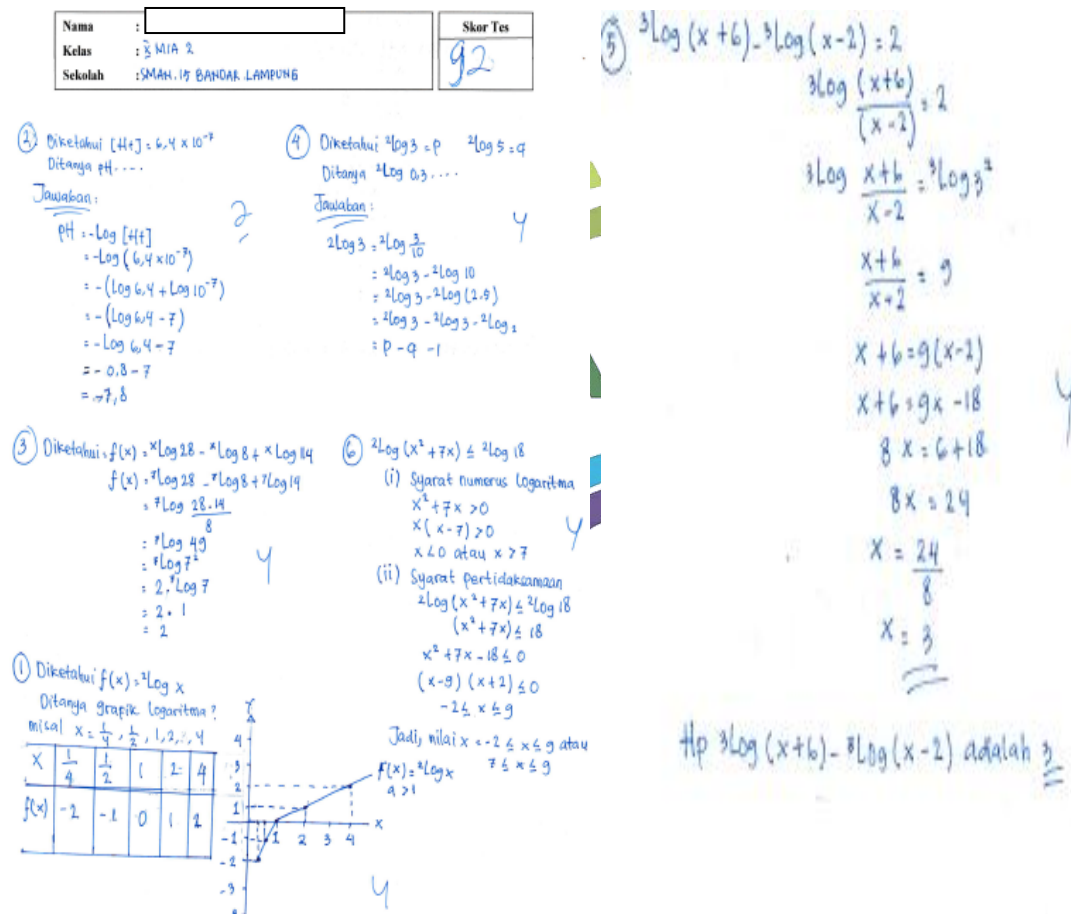 Nama :
Kelas : X MIA 2
Sekolah : SMAN. 15 BANDAR LAMPUNG
Skor Tes
92
② Diketahui [H+] = 6,4 × 10⁻⁷
Ditanya pH ....
Jawaban :
pH = -Log [H+]
= -Log (6,4 × 10⁻⁷)
= -(Log 6,4 + Log 10⁻⁷)
= -(Log 6,4 - 7)
= -Log 6,4 - 7
= -0,8 - 7
= -7,8
2
④ Diketahui ²log 3 = p ²log 5 = q
Ditanya ²Log 0,3 ....
Jawaban :
2Log 3 = ²Log 3/10
= ²log 3 - ²log 10
= ²log 3 - ²Log (2.5)
= ²log 3 - ²log 3 - ²Log 2
= p - q - 1
4
③ Diketahui : f(x) = ˣLog 28 - ˣLog 8 + ˣLog 114
f(x) = ⁷Log 28 - ⁷Log 8 + ⁷Log 14
= ⁷Log 28.14/8
= ⁷Log 49
= ⁷Log 7²
= 2.⁷Log 7
= 2 . 1
= 2
4
⑥ ²Log (x² + 7x) ≤ ²Log 18
(i) Syarat numerus logaritma
x² + 7x > 0
x (x - 7) > 0
x < 0 atau x > 7
(ii) Syarat pertidaksamaan
2Log (x² + 7x) ≤ ²Log 18
(x² + 7x) ≤ 18
x² + 7x - 18 ≤ 0
(x - 9) (x + 2) ≤ 0
-2 ≤ x ≤ 9
Jadi, nilai x = -2 ≤ x ≤ 9 atau
7 ≤ x ≤ 9
4
① Diketahui f(x) = ²Log x
Ditanya grafik logaritma?
misal x = 1/4, 1/2, 1, 2, 4
x 1/4 1/2 1 2 4
f(x) -2 -1 0 1 2
Y
4
3
2
1
-1
-2
-3
1 2 3 4 X
f(x) = ²Log x
a > 1
4
⑤ ³Log (x + 6) - ³Log (x - 2) = 2
³Log (x+6)/(x-2) = 2
³Log x+6/x-2 = ³Log 3²
x+6/x-2 = 9
x + 6 = 9(x - 2)
x + 6 = 9x - 18
8x = 6 + 18
8x = 24
x = 24/8
x = 3
4
Hp 3Log (x+6) - ³Log (x-2) adalah 3